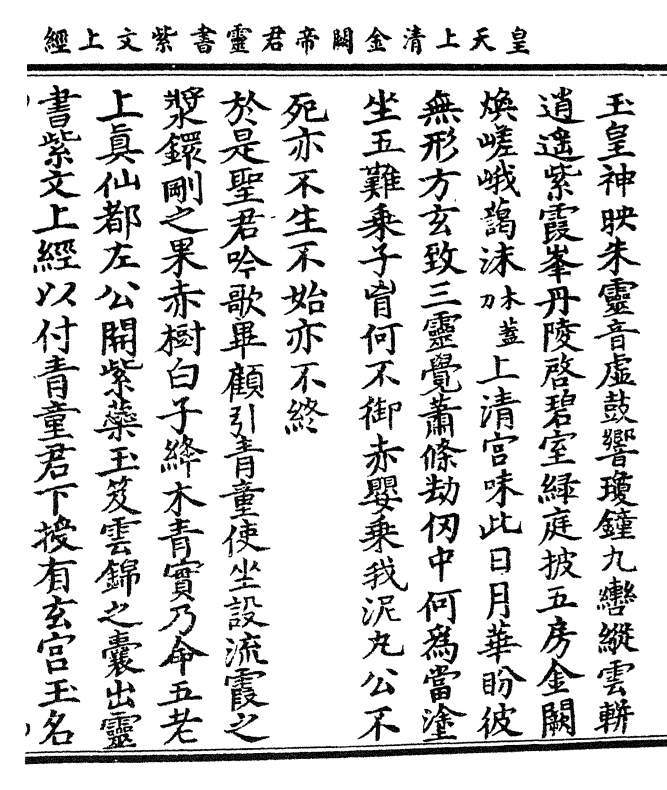 皇天上清金闕帝君靈書紫文上經
玉皇神映朱靈音虛鼓響瓊鐘九轡縱雲軿
逍遥紫霞峯丹陵啓碧室緑庭披五房金闕
煥嵯峨藹沫刀木蓋上清宫味此日月華盼彼
無形方玄致三靈覺蕭條劫仞中何爲當塗
坐五難乗子胷何不御赤嬰乗我泥丸公不
死亦不生不始亦不終
於是聖君吟歌畢顧引青童使坐設流霞之
漿鐶剛之果赤樹白子絳木青實乃命五老
上真仙都左公開紫蘂玉笈雲錦之囊出靈
書紫文上經以付青童君下授有玄宫玉名